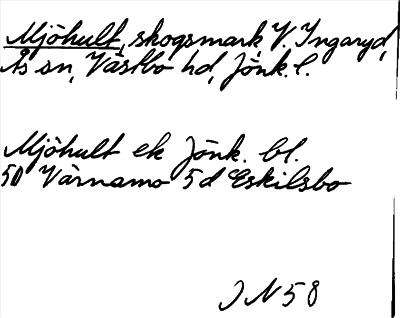 Mjöhult, skogsmark V. Ingaryd,
Ås sn, Västbo hd, Jönk. l.
Mjöhult ek Jönk. bl.
50 Värnamo 5d Eskilsbo
J N 58